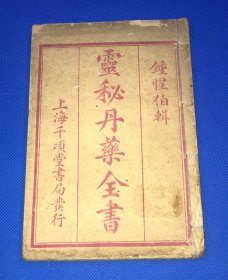 鍾惺伯輯
靈秘丹藥全書
上海千頃堂書局發行